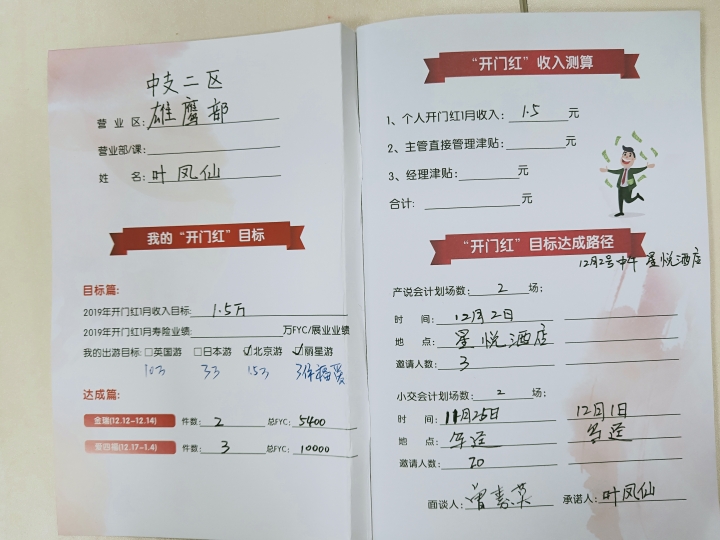 中支二区
营 业 区: 雄鹰部
营业部/课:
姓 名: 叶凤仙
我的“开门红”目标
目标篇:
2019年开门红1月收入目标: 1.5万
2019年开门红1月寿险业绩: 万FYC/展业业绩
我的出游目标: □英国游 □日本游 ☑北京游 ☑丽星游
10万 3万 1.5万
达成篇:
金瑞(12.12-12.14) 件数: 2 总FYC: 5400
爱心福(12.17-1.4) 件数: 3 总FYC: 10000
“开门红”收入测算
1、个人开门红1月收入: 1.5 元
2、主管直接管理津贴: 元
3、经理津贴: 元
合计: 元
“开门红”目标达成路径
12月2号中午 星悦酒店
产说会计划场数: 2 场;
时 间: 12月2日
地 点: 星悦酒店
邀请人数: 3
小交会计划场数: 2 场;
时 间: 11月25日 12月1日
地 点:
邀请人数: 20
面谈人: 曾素英 承诺人: 叶凤仙